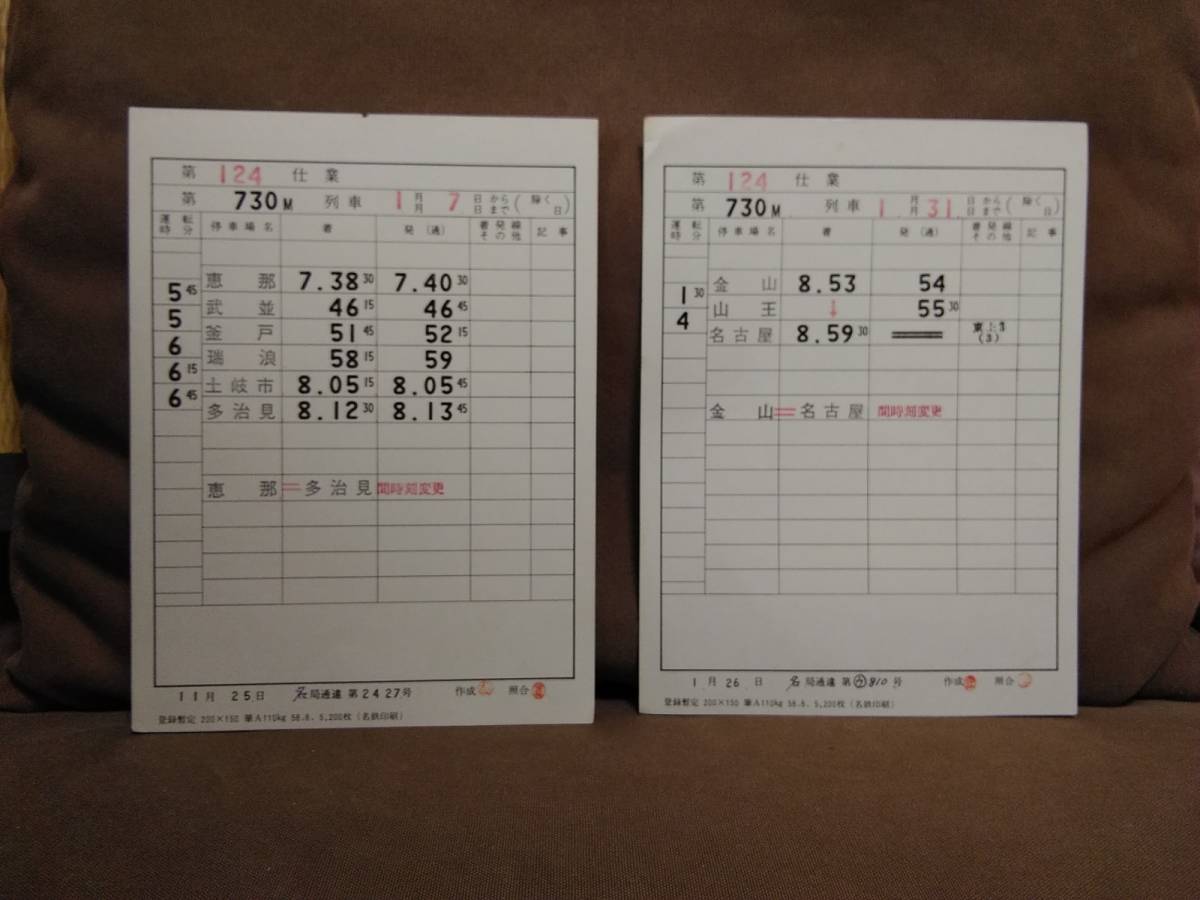 第 124 仕業
第 730M 列車 1月 7日から 月 日まで(除く 日)
運転時分 停車場名 着 発(通) 着発線その他 記事
恵那 7.38 30 7.40 30
5 45 武並 46 15 46 45
5 釜戸 51 45 52 15
6 瑞浪 58 15 59
6 15 土岐市 8.05 15 8.05 45
6 45 多治見 8.12 30 8.13 45
恵那=多治見 間時刻変更
11月 25日 名局通達 第2427号 作成 照合
登録暫定 200×150 筆A110kg 58.8. 5,200枚 (名鉄印刷)
第 124 仕業
第 730M 列車 1月 31日から 月 日まで(除く 日)
運転時分 停車場名 着 発(通) 着発線その他 記事
金山 8.53 54
1 30 山王 ↓ 55 30
4 名古屋 8.59 30 ══ 東上1 (3)
金山=名古屋 間時刻変更
1月 26日 名局通達 第㋒810号 作成 照合
登録暫定 200×150 筆A110kg 58.8. 5,200枚 (名鉄印刷)